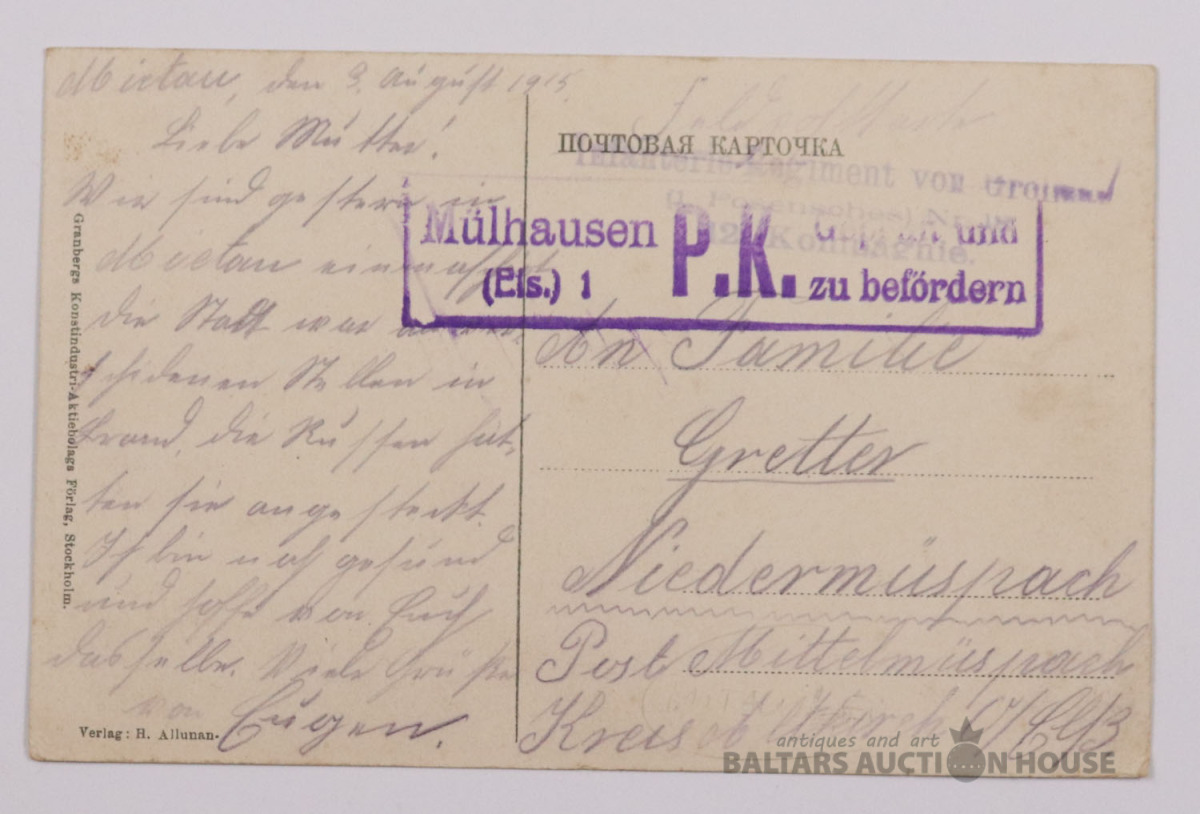 Mietau, den 3. August 1915.
Liebe Mutter!
Wir sind gestern in
Mietau einmarschit
die Stadt war an ver
schidenen Stellen in
brand, die Russen hat,
ten sie angesteckt.
Ich bin noch gesund
und hoffe von Euch
dasselbe. Viele Grüße
von Eugen.
Granbergs Konstindustri-Aktiebolags Förlag, Stockholm.
Verlag: H. Allunan-
Feldpostkarte
ПОЧТОВАЯ КАРТОЧКА
Infanterie-Regiment von Grolman
(1. Posensches) Nr. 18
12. Kompagnie.
Mülhausen
(Els.) 1
P.K.
und
zu befördern
An Familie
Gretter
Niedermüspach
Post Mittelmüspach
Kreis Altkirch O/Elß
antiques and art
BALTARS AUCTION HOUSE